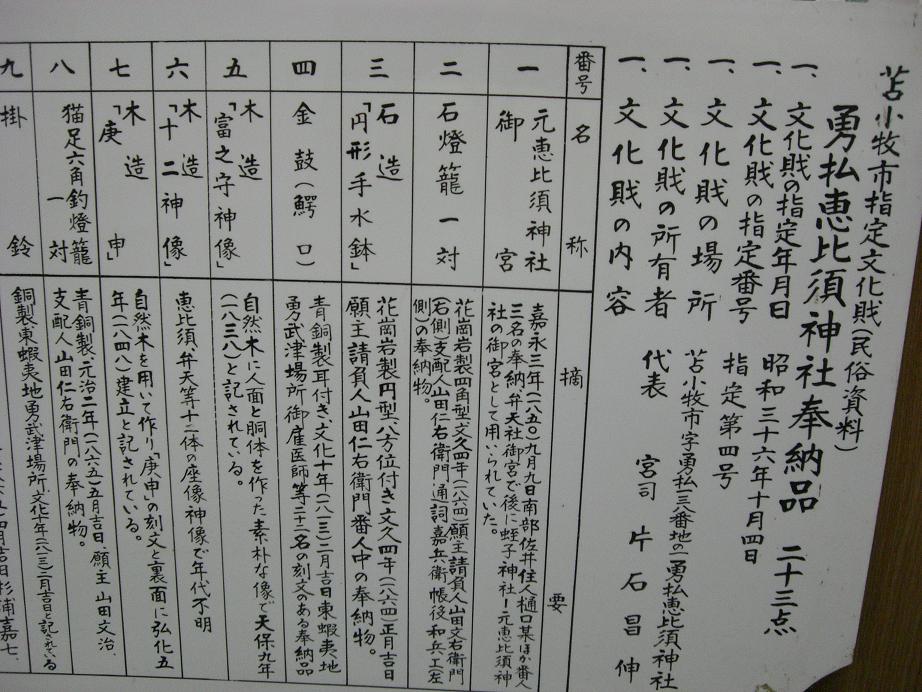 苫小牧市指定文化財(民俗資料)
勇払恵比須神社奉納品 二十三点
一、文化財の指定年月日 昭和三十六年十月四日
一、文化財の指定番号 指定第四号
一、文化財の場所 苫小牧市字勇払三八番地の一勇払恵比須神社
一、文化財の所有者 代表 宮司 片石昌伸
一、文化財の内容
番号 名称 摘要
一 元恵比須神社
御宮
嘉永三年(一八五〇)九月九日南部佐井住人樋口某ほか番人
三名の奉納弁天社御宮で後に蛭子神社―元恵比須神
社の御宮として用いられていた。
二 石燈籠一対
花崗岩製四角型文久四年(一八六四)願主請負人山田文右衛門
(右側)支配人山田仁右衛門通詞嘉兵衛帳役和兵エ(左
側)の奉納物。
三 石造
「円形手水鉢」
花崗岩製円型八方位付き文久四年(一八六四)正月吉日
願主請負人山田仁右衛門番人中の奉納物。
四 金鼓(鰐口)
青銅製耳付き文化十年(一八一三)二月吉日東蝦夷地
勇武津場所御雇医師等二十二名の刻文のある奉納品
五 木造
「富之守神像」
自然木に人面と胴体を作った素朴な像で天保九年
(一八三八)と記されている。
六 木造
「十二神像」
恵比須、弁天等十二体の座像神像で年代不明
七 木造
「庚申」
自然木を用いて作り「庚申」の刻文と裏面に弘化五
年(一八四八)建立と記されている。
八 猫足六角釣燈籠
一対
青銅製元治二年(一八六五)五月吉日、願主山田文治、
支配人山田仁右衛門の奉納物。
九 掛鈴
銅製東蝦夷地勇武津場所、文化十年(一八一三)二月吉日と記されている
四月吉日杉浦嘉七、